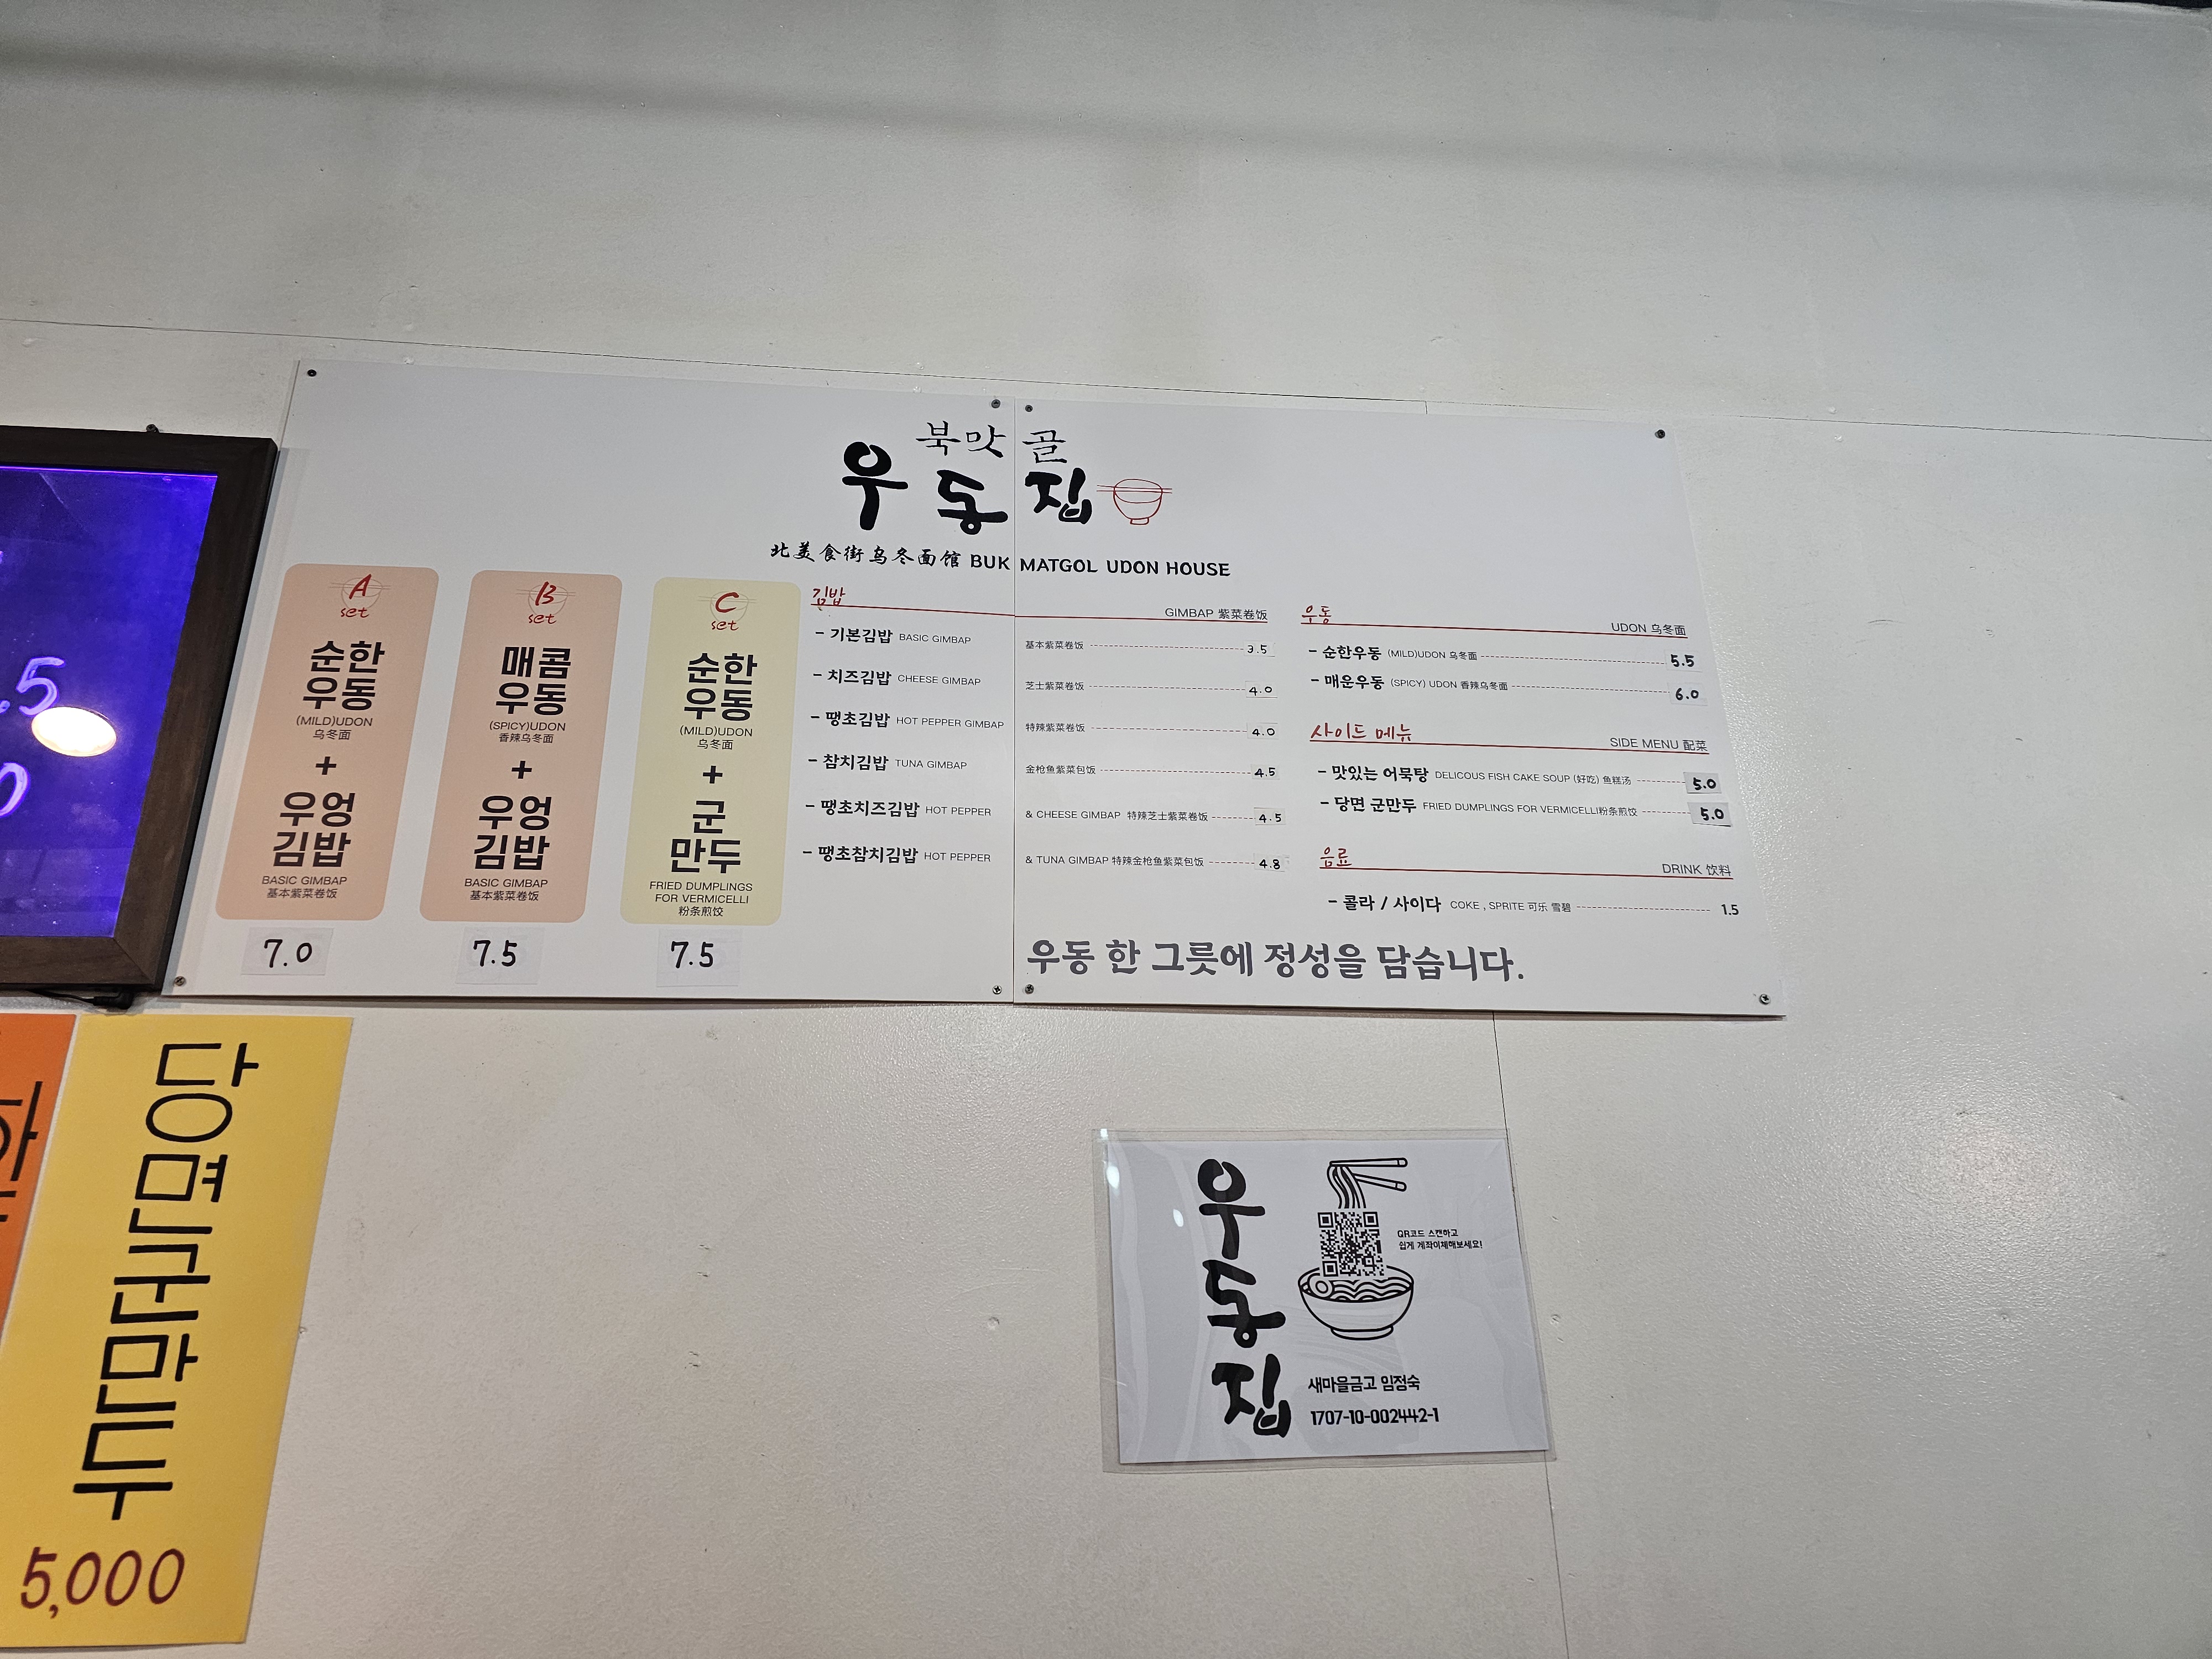 북맛골
우동집
北美食街乌冬面馆 BUK MATGOL UDON HOUSE
A
set
순한
우동
(MILD)UDON
乌冬面
+
우엉
김밥
BASIC GIMBAP
基本紫菜卷饭
7.0
B
set
매콤
우동
(SPICY)UDON
香辣乌冬面
+
우엉
김밥
BASIC GIMBAP
基本紫菜卷饭
7.5
C
set
순한
우동
(MILD)UDON
乌冬面
+
군
만두
FRIED DUMPLINGS
FOR VERMICELLI
粉条煎饺
7.5
김밥 GIMBAP 紫菜卷饭
- 기본김밥 BASIC GIMBAP 基本紫菜卷饭 3.5
- 치즈김밥 CHEESE GIMBAP 芝士紫菜卷饭 4.0
- 땡초김밥 HOT PEPPER GIMBAP 特辣紫菜卷饭 4.0
- 참치김밥 TUNA GIMBAP 金枪鱼紫菜包饭 4.5
- 땡초치즈김밥 HOT PEPPER & CHEESE GIMBAP 特辣芝士紫菜卷饭 4.5
- 땡초참치김밥 HOT PEPPER & TUNA GIMBAP 特辣金枪鱼紫菜包饭 4.8
우동 UDON 乌冬面
- 순한우동 (MILD)UDON 乌冬面 5.5
- 매운우동 (SPICY) UDON 香辣乌冬面 6.0
사이드 메뉴 SIDE MENU 配菜
- 맛있는 어묵탕 DELICOUS FISH CAKE SOUP (好吃) 鱼糕汤 5.0
- 당면 군만두 FRIED DUMPLINGS FOR VERMICELLI粉条煎饺 5.0
음료 DRINK 饮料
- 콜라 / 사이다 COKE , SPRITE 可乐 雪碧 1.5
우동 한 그릇에 정성을 담습니다.
당면군만두
5,000
우동집
QR코드 스캔하고
쉽게 계좌이체해보세요!
새마을금고 임정숙
1707-10-002442-1